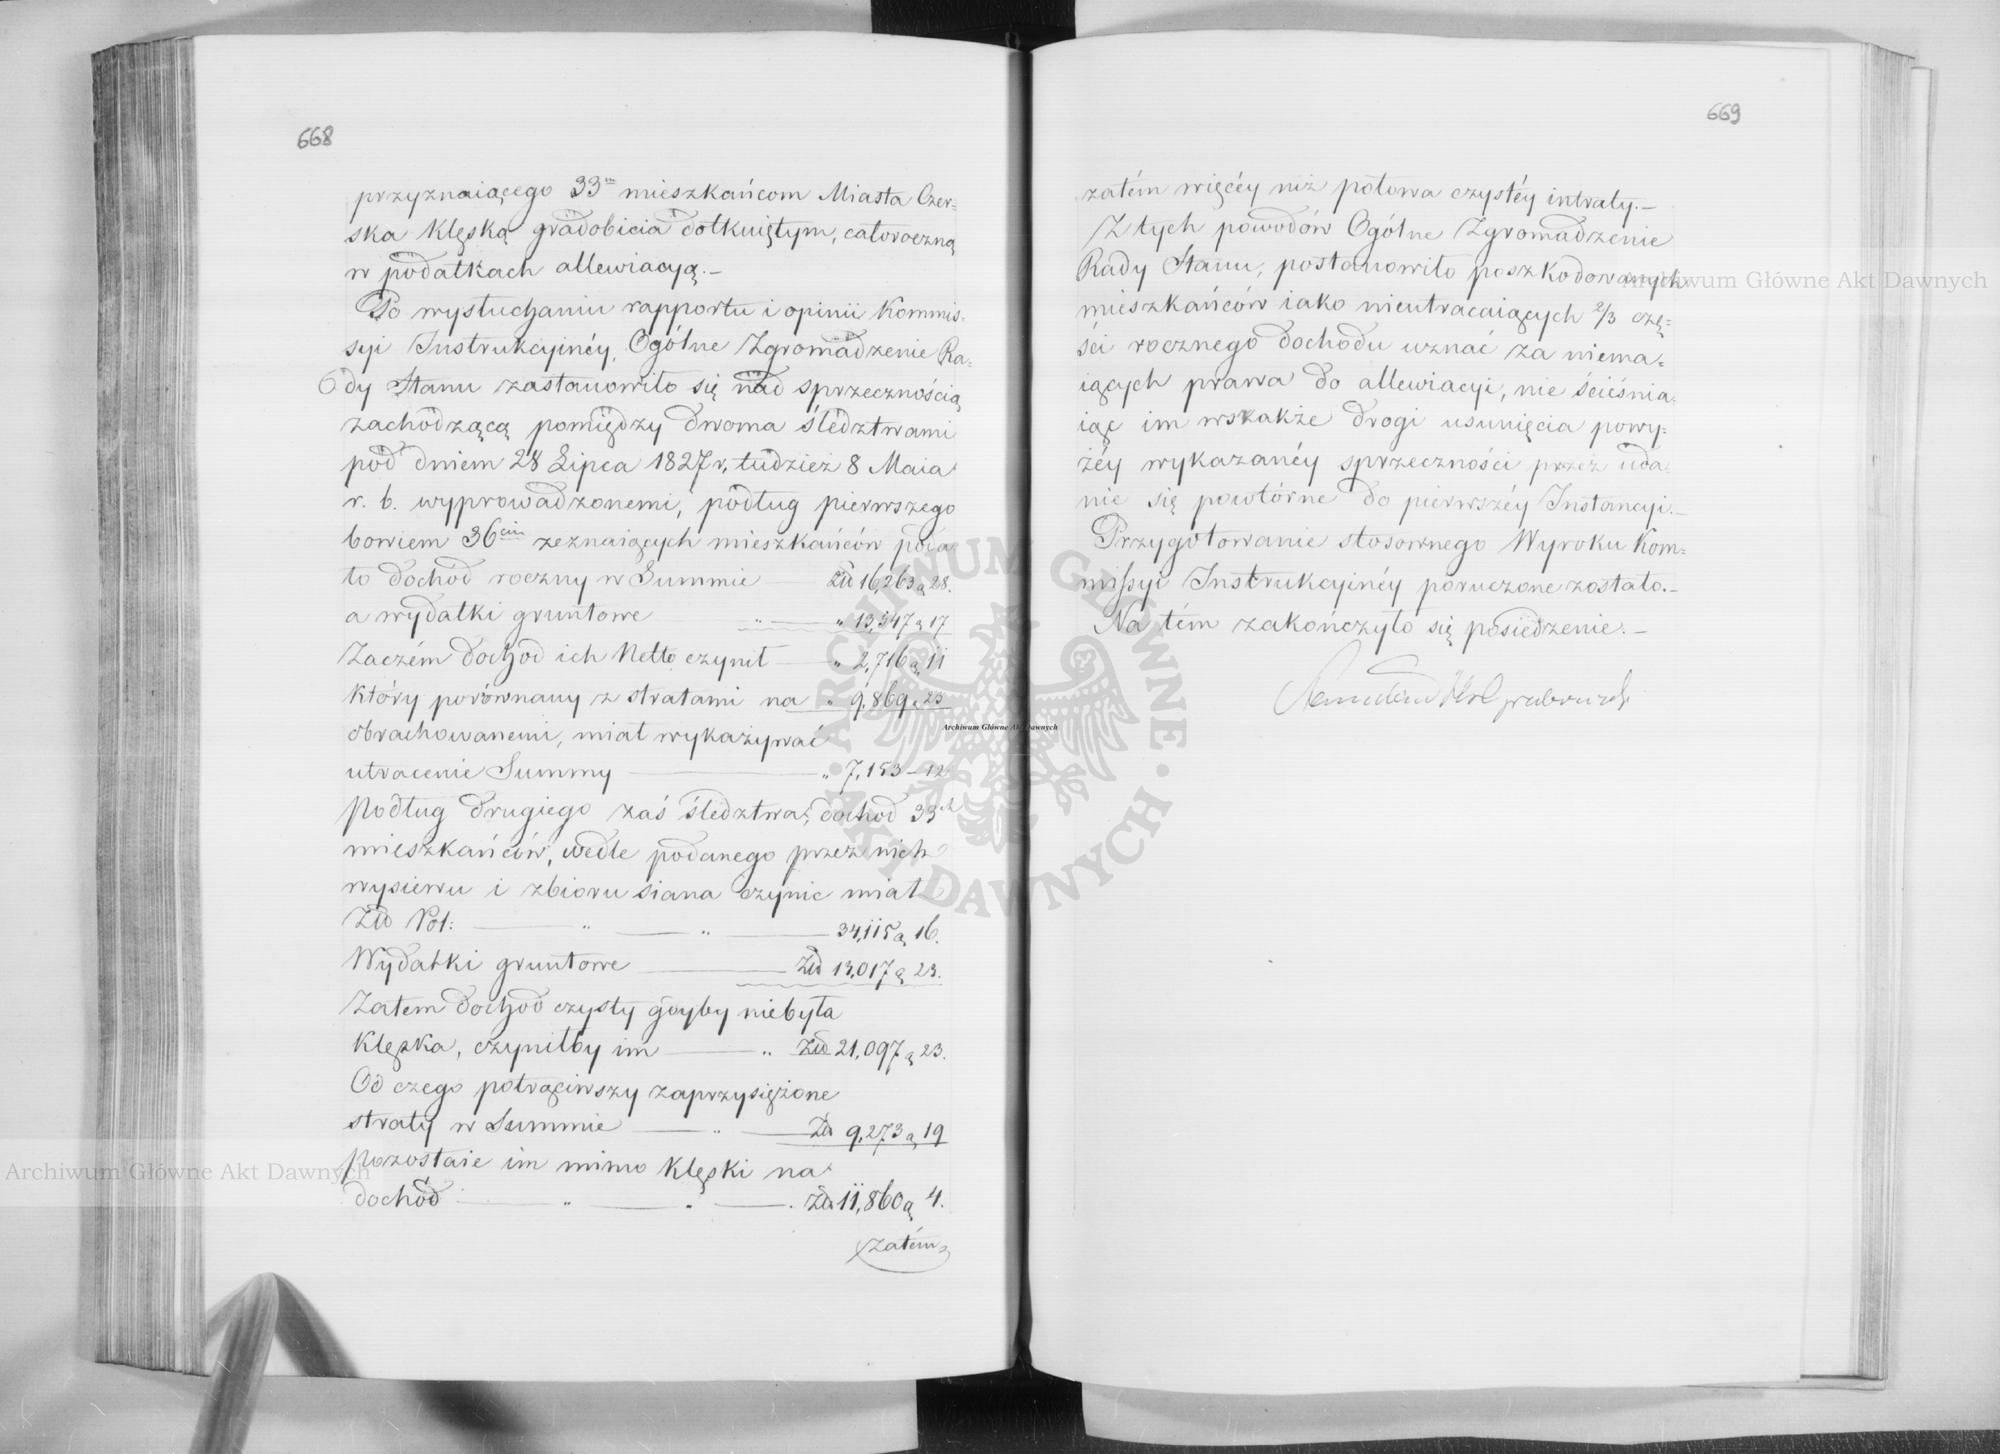 668
przyznaiącego 33m mieszkańcom Miasta Czer=
ska klęską gradobicia dotkniętym, całoroczną
w podatkach allewiacyą.—
Po wysłuchaniu rapportu i opinii Kommis=
syi Instrukcyinéy, Ogólne Zgromadzenie Ra=
dy Stanu zastanowiło się nad sprzecznością
zachodzącą pomiędzy dwoma śledztwami
pod dniem 28 Lipca 1827 r, tudzież 8 Maia
r. b. wyprowadzonemi, podług pierwszego
bowiem 36ciu zeznaiących mieszkańców poda
ło dochód roczny w Summie — Złd 16,263 g 28.
a wydatki gruntowe „ — „ 13,547 g 17
Zaczém dochod ich Netto czynił — „ 2,716 g 11
który porównany z stratami na „ 9,869 g 23
obrachowanemi, miał wykazywać
utracenie Summy — „ 7,153 — 12
Podług drugiego zaś śledztwa, dochod 33ch
mieszkańców, wedle podanego przez nich
wysiewu i zbioru siana czynic miał
Złd Pol: — „ — „ — 34,115 g 16.
Wydatki gruntowe — Złd 13,017 g 23.
Zatem dochod czysty gdyby niebyła
klęska, czyniłby im — „ Złd 21,097 g 23.
Od czego potrąciwszy zaprzysiężone
straty w Summie — „ — Zł 9,273 g 19
pozostaie im mimo klęski na
dochód — „ — „ — Złd 11,860 g 4.
zatém
669
zatém więcéy niż połowa czystéy intraty.—
Z tych powodów Ogólne Zgromadzenie
Rady Stanu, postanowiło poszkodowanych
mieszkańców iako nieutracaiących 2/3 czę=
ści rocznego dochodu uznać za niema=
iących prawa do allewiacyi, nie ścieśnia=
iąc im wszakże drogi usunięcia powy=
żéy wykazanéy sprzeczności przez uda
nie się powtórne do pierwszéy Instancyi.—
Przygotowanie stosownego Wyroku Kom=
missyi Instrukcyinéy poruczone zostało.—
Na tém zakończyło się posiedzenie.—
Archiwum Główne Akt Dawnych
Archiwum Główne Akt Dawnych
Archiwum Główne Akt Dawnych
ARCHIWUM GŁÓWNE · AKT DAWNYCH ·